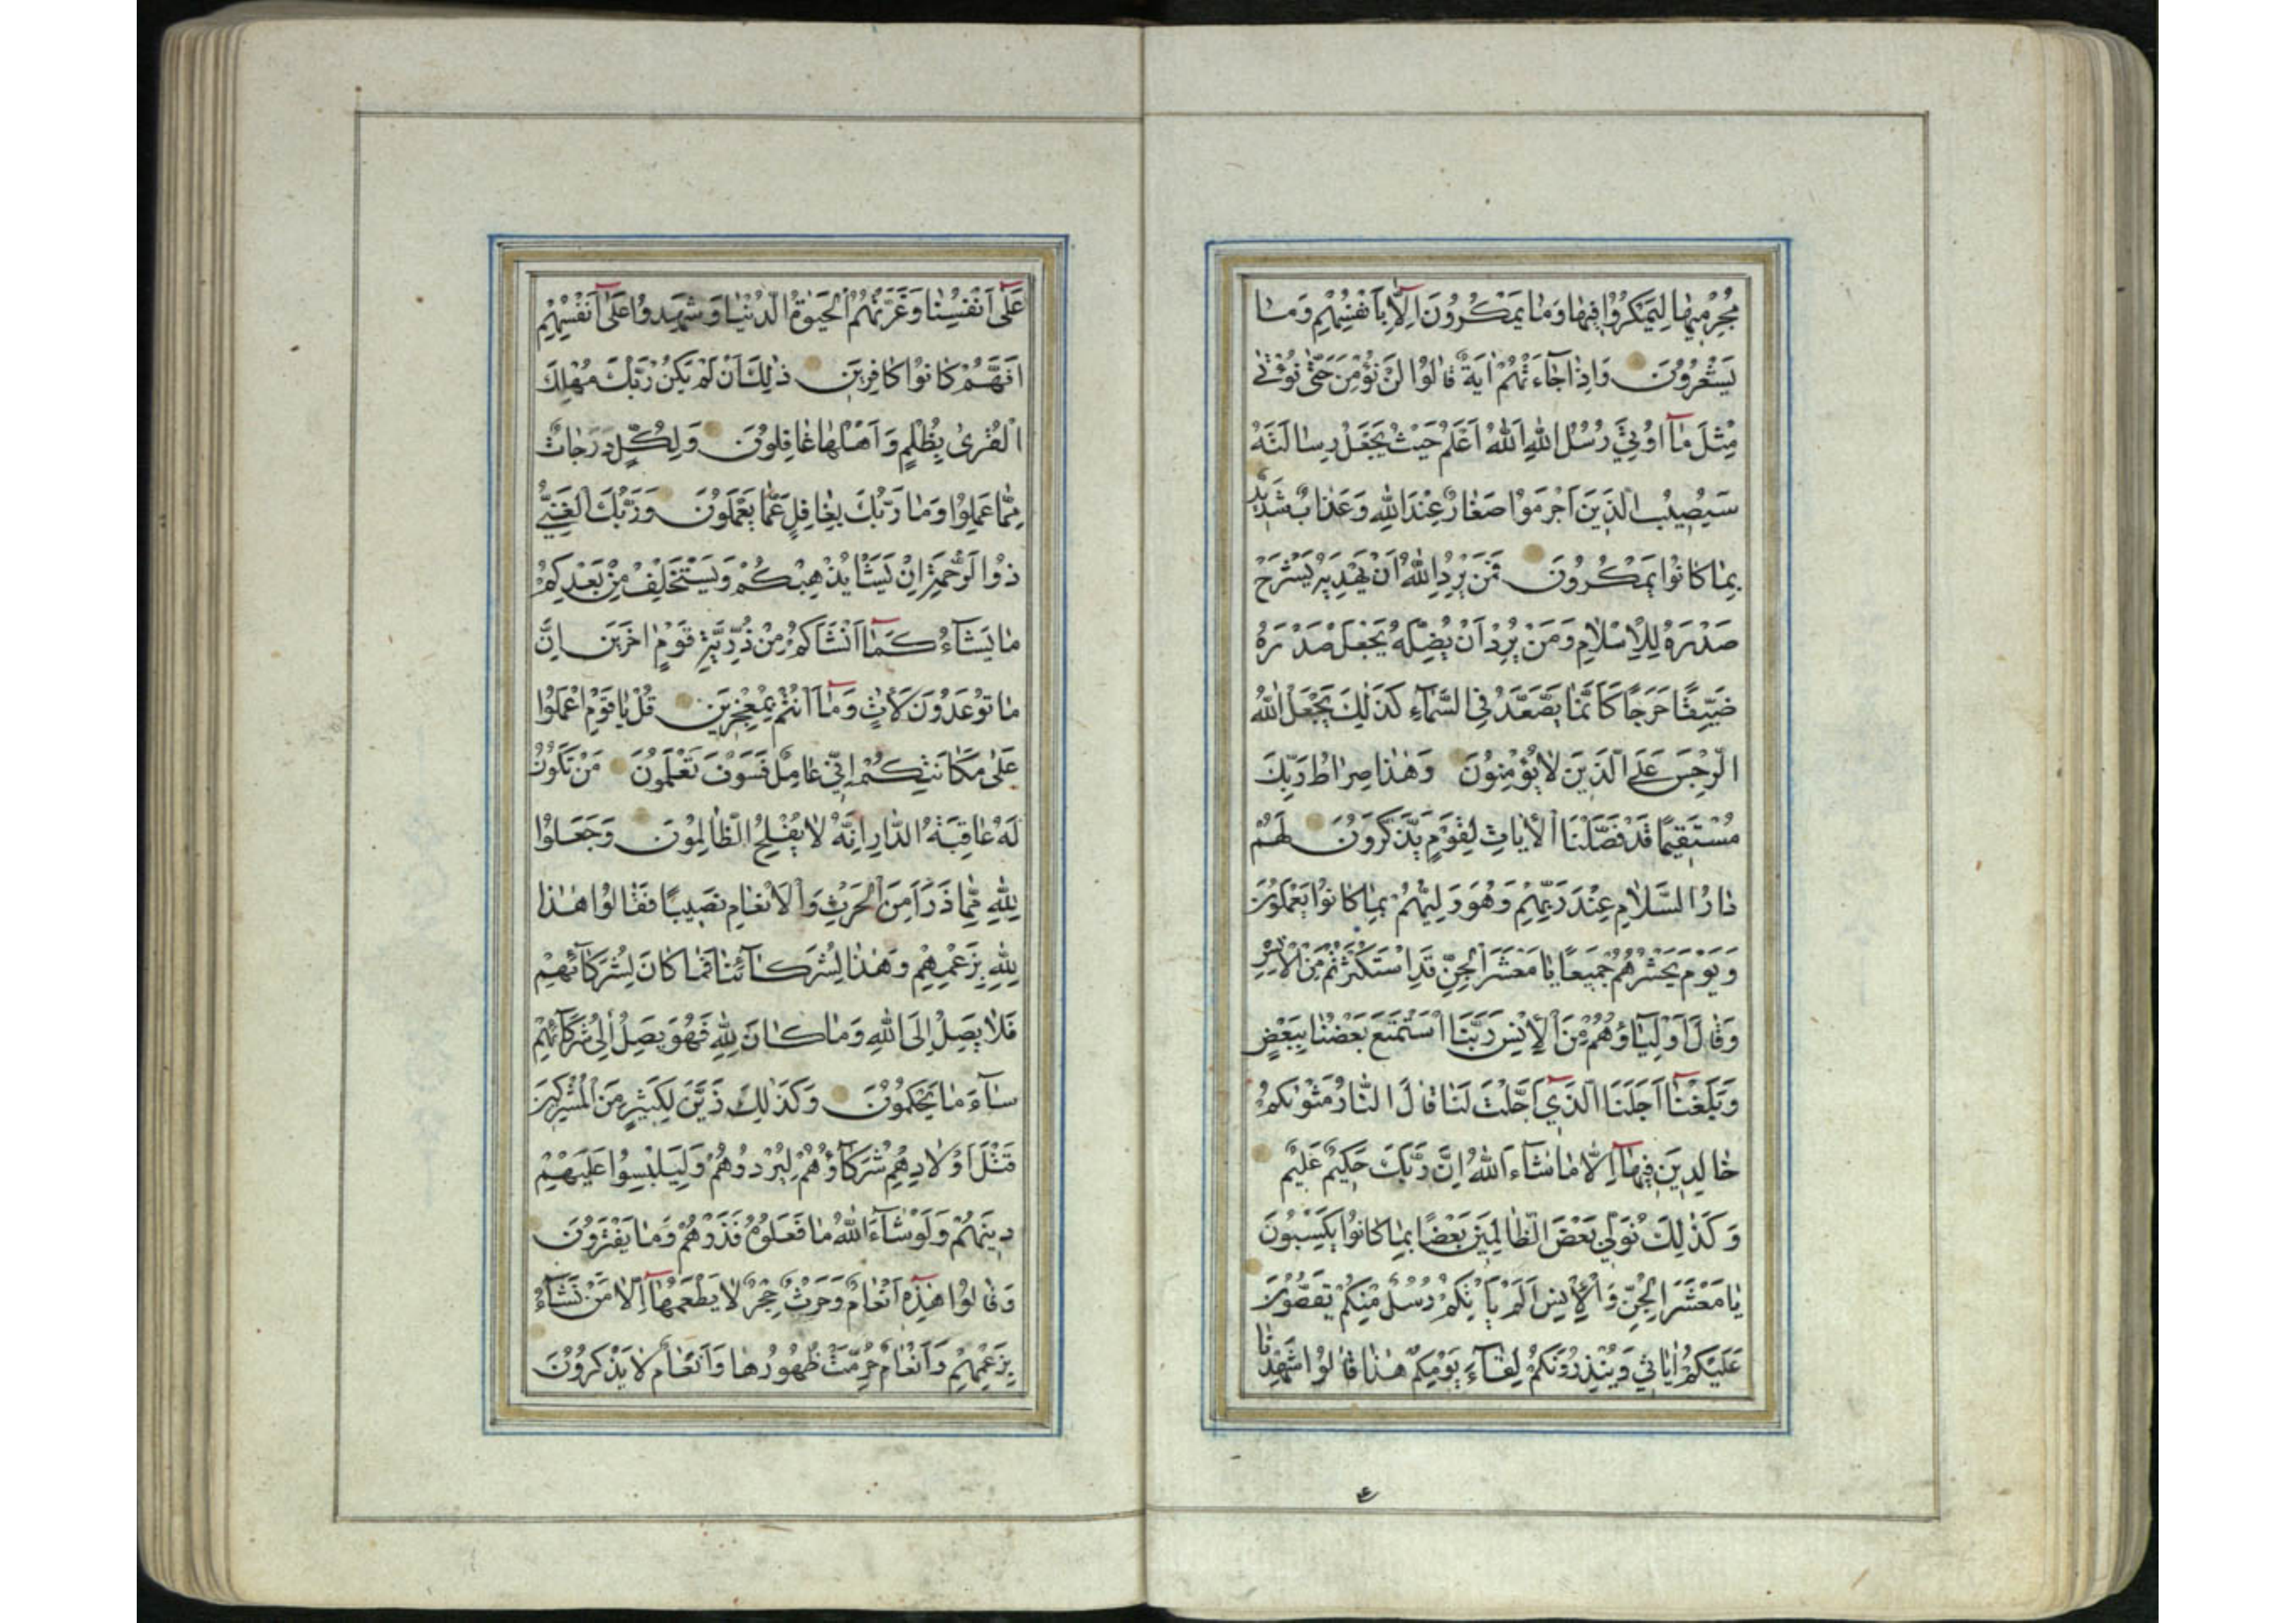 مُجْرِمِيهَا لِيَمْكُرُوا فِيهَا وَمَا يَمْكُرُونَ اِلَّا بِاَنْفُسِهِمْ وَمَا
يَشْعُرُونَ وَاِذَا جَاءَتْهُمْ اٰيَةٌ قَالُوا لَنْ نُؤْمِنَ حَتّٰى نُؤْتٰى
مِثْلَ مَآ اُوتِيَ رُسُلُ اللهِ اَللهُ اَعْلَمُ حَيْثُ يَجْعَلُ رِسَالَتَهُ
سَيُصِيبُ الَّذِينَ اَجْرَمُوا صَغَارٌ عِنْدَ اللهِ وَعَذَابٌ شَدِيدٌ
بِمَا كَانُوا يَمْكُرُونَ فَمَنْ يُرِدِ اللهُ اَنْ يَهْدِيَهُ يَشْرَحْ
صَدْرَهُ لِلْاِسْلَامِ وَمَنْ يُرِدْ اَنْ يُضِلَّهُ يَجْعَلْ صَدْرَهُ
ضَيِّقًا حَرَجًا كَاَنَّمَا يَصَّعَّدُ فِي السَّمَآءِ كَذٰلِكَ يَجْعَلُ اللهُ
الرِّجْسَ عَلَى الَّذِينَ لَا يُؤْمِنُونَ وَهٰذَا صِرَاطُ رَبِّكَ
مُسْتَقِيمًا قَدْ فَصَّلْنَا الْاٰيَاتِ لِقَوْمٍ يَذَّكَّرُونَ لَهُمْ
دَارُ السَّلَامِ عِنْدَ رَبِّهِمْ وَهُوَ وَلِيُّهُمْ بِمَا كَانُوا يَعْمَلُونَ
وَيَوْمَ يَحْشُرُهُمْ جَمِيعًا يَا مَعْشَرَ الْجِنِّ قَدِ اسْتَكْثَرْتُمْ مِنَ الْاِنْسِ
وَقَالَ اَوْلِيَاؤُهُمْ مِنَ الْاِنْسِ رَبَّنَا اسْتَمْتَعَ بَعْضُنَا بِبَعْضٍ
وَبَلَغْنَآ اَجَلَنَا الَّذِيٓ اَجَّلْتَ لَنَا قَالَ النَّارُ مَثْوٰىكُمْ
خَالِدِينَ فِيهَآ اِلَّا مَا شَآءَ اللهُ اِنَّ رَبَّكَ حَكِيمٌ عَلِيمٌ
وَكَذٰلِكَ نُوَلِّي بَعْضَ الظَّالِمِينَ بَعْضًا بِمَا كَانُوا يَكْسِبُونَ
يَا مَعْشَرَ الْجِنِّ وَالْاِنْسِ اَلَمْ يَاْتِكُمْ رُسُلٌ مِنْكُمْ يَقُصُّونَ
عَلَيْكُمْ اٰيَاتِي وَيُنْذِرُونَكُمْ لِقَآءَ يَوْمِكُمْ هٰذَا قَالُوا شَهِدْنَا
عَلٰٓى اَنْفُسِنَا وَغَرَّتْهُمُ الْحَيٰوةُ الدُّنْيَا وَشَهِدُوا عَلٰٓى اَنْفُسِهِمْ
اَنَّهُمْ كَانُوا كَافِرِينَ ذٰلِكَ اَنْ لَمْ يَكُنْ رَبُّكَ مُهْلِكَ
الْقُرٰى بِظُلْمٍ وَاَهْلُهَا غَافِلُونَ وَلِكُلٍّ دَرَجَاتٌ
مِمَّا عَمِلُوا وَمَا رَبُّكَ بِغَافِلٍ عَمَّا يَعْمَلُونَ وَرَبُّكَ الْغَنِيُّ
ذُو الرَّحْمَةِ اِنْ يَشَاْ يُذْهِبْكُمْ وَيَسْتَخْلِفْ مِنْ بَعْدِكُمْ
مَا يَشَآءُ كَمَآ اَنْشَاَكُمْ مِنْ ذُرِّيَّةِ قَوْمٍ اٰخَرِينَ اِنَّ
مَا تُوعَدُونَ لَاٰتٍ وَمَآ اَنْتُمْ بِمُعْجِزِينَ قُلْ يَا قَوْمِ اعْمَلُوا
عَلٰى مَكَانَتِكُمْ اِنِّي عَامِلٌ فَسَوْفَ تَعْلَمُونَ مَنْ تَكُونُ
لَهُ عَاقِبَةُ الدَّارِ اِنَّهُ لَا يُفْلِحُ الظَّالِمُونَ وَجَعَلُوا
لِلّٰهِ مِمَّا ذَرَاَ مِنَ الْحَرْثِ وَالْاَنْعَامِ نَصِيبًا فَقَالُوا هٰذَا
لِلّٰهِ بِزَعْمِهِمْ وَهٰذَا لِشُرَكَآئِنَا فَمَا كَانَ لِشُرَكَآئِهِمْ
فَلَا يَصِلُ اِلَى اللهِ وَمَا كَانَ لِلّٰهِ فَهُوَ يَصِلُ اِلٰى شُرَكَآئِهِمْ
سَآءَ مَا يَحْكُمُونَ وَكَذٰلِكَ زَيَّنَ لِكَثِيرٍ مِنَ الْمُشْرِكِينَ
قَتْلَ اَوْلَادِهِمْ شُرَكَآؤُهُمْ لِيُرْدُوهُمْ وَلِيَلْبِسُوا عَلَيْهِمْ
دِينَهُمْ وَلَوْ شَآءَ اللهُ مَا فَعَلُوهُ فَذَرْهُمْ وَمَا يَفْتَرُونَ
وَقَالُوا هٰذِهٓ اَنْعَامٌ وَحَرْثٌ حِجْرٌ لَا يَطْعَمُهَآ اِلَّا مَنْ نَشَآءُ
بِزَعْمِهِمْ وَاَنْعَامٌ حُرِّمَتْ ظُهُورُهَا وَاَنْعَامٌ لَا يَذْكُرُونَ